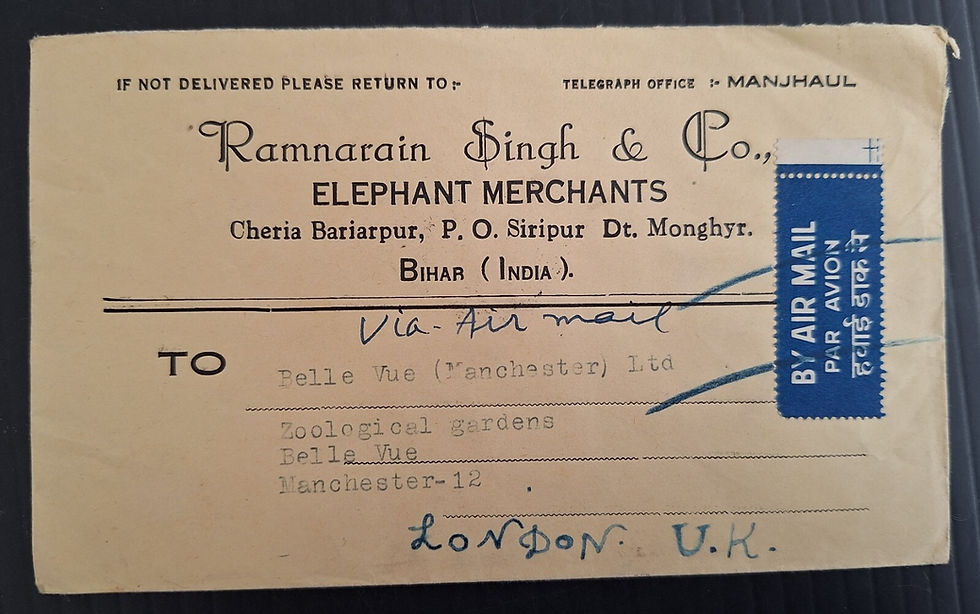 IF NOT DELIVERED PLEASE RETURN TO :-
TELEGRAPH OFFICE :- MANJHAUL
Ramnarain Singh & Co.,
ELEPHANT MERCHANTS
Cheria Bariarpur, P. O. Siripur Dt. Monghyr.
BIHAR ( INDIA ).
Via-Air mail
BY AIR MAIL
PAR AVION
हवाई डाक से
TO
Belle Vue (Manchester) Ltd
Zoological gardens
Belle Vue
Manchester-12 .
LONDON. U.K.